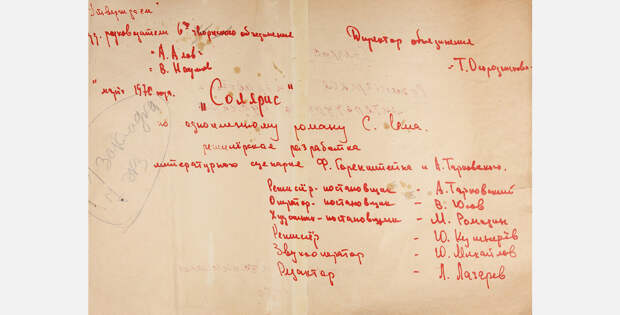 "Утверждаем"
худ. руководители 6го творческого объединения
- А. Алов -
- В. Наумов
" март 1970 года.
Директор объединения
- Т. Огородникова -
"Солярис"
по одноименному роману С. Лема.
режиссёрская разработка
литературного сценария Ф. Горенштейна и А. Тарковского.
Режиссёр-постановщик - А. Тарковский
Оператор-постановщик - В. Юсов
Художник-постановщик - М. Ромадин
Режиссёр - Ю. Кушнерёв
Звукооператор - Ю. Михайлов
Редактор - Л. Лазарев
закладка